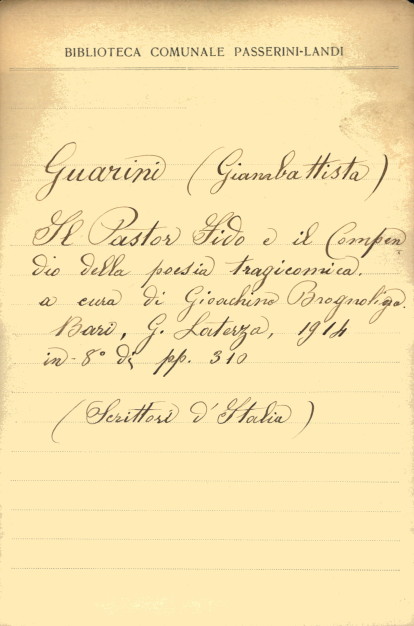 BIBLIOTECA COMUNALE PASSERINI-LANDI
Guarini (Giambattista)
Il Pastor Fido e il Compen
dio della poesia tragicomica.
a cura di Gioachino Brognoligo.
Bari, G. Laterza, 1914
in-8° di pp. 310
(Scrittori d'Italia)